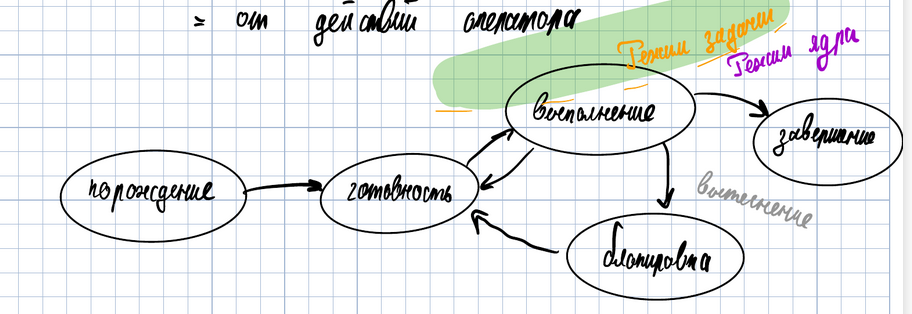 = от действий оператора
Режим задачи
Режим ядра
выполнение
завершение
порождение
готовность
вытеснение
блокировка